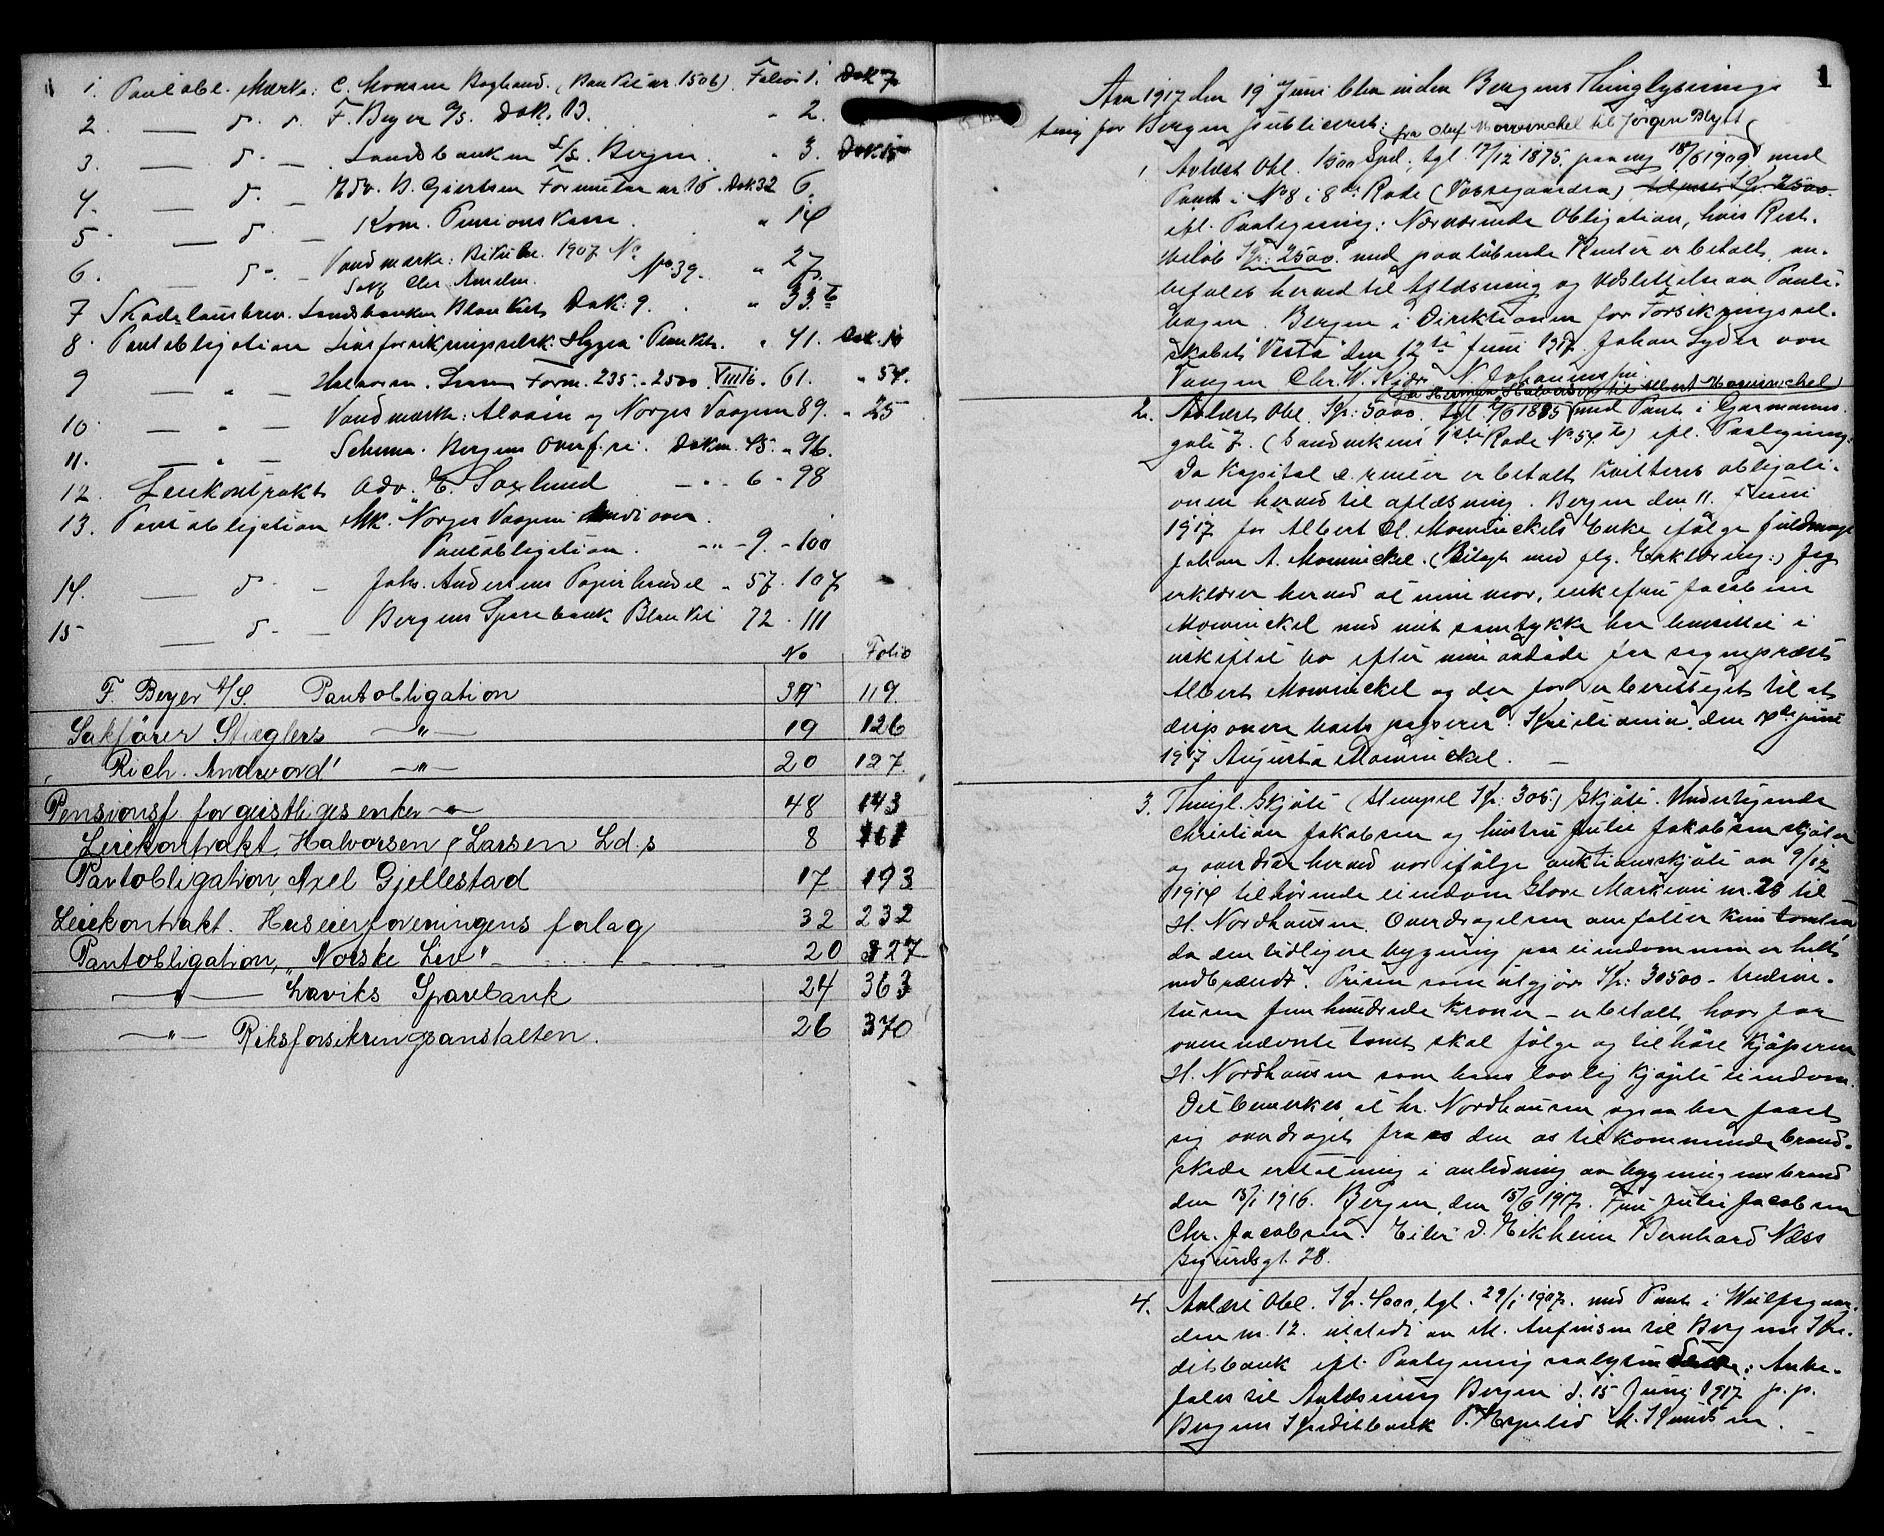 1. Pantobl. Mærke: C. Monsen Boghand. (Blankit nr. 1506) Folio 1. Dok 7
2. — d. d. F. Beyer A/S. Dok. 13. " 2.
3. — d. — Landsbanken A/S. Bergen. " 3. Dok
4. — d. — Adv. B. Giertsen Formular nr. 16. Dok 32 6.
5 — d. — Kom. Pensionskasse. " 14
6. — d. — Vandmærke: Bikube. 1907. No
Sakf. Chr. No 39. " 27
7 Skadeslausbrev. Landsbanken Blankets Dok: 9. " 33 b
8. Pantobligation Livsforsikringsselsk. Hygea Pinkts. " 41. Dok. 10
9 — " — Halvorsen. Larsen Form. 235.-2500. VIII/16. 61. " 54.
10. — " — Vandmærke: Alvøen og Norges Vaapen 89. " 25
11. — " — Schema. Bergens Dokm. 45. " 96.
12. Leiekontrakt Adv. E. Saxlund — " 6 - 98
13. Pantobligation Mk. "Norges Vaapen"
Pantobligation. — " - 9. - 100
14. — d. — Johs. Andersens Papirhandel " 57. 107
15 — d. — Bergens Sparebank Blanket 72 . 111
No Folio
F. Beyer A/S. Pantobligation 119
Sakfører Stieglers —"— 19 126
Rich. Andvord' —"— 20 127.
Pensionsf. for geistliges enker —"— 48 143
Leiekontrakt, Halvorsen & Larsen Ld.s 8 161
Pantobligation, Axel Gjellestad 17 193
Leiekontrakt. Huseierforeningens forlag 32 232
Pantobligation, "Norske Liv" 20 327
—"— Laviks Sparebank 24 363
—"— Riksforsikringsanstalten. 26 370
1
Aar 1917 den 19 Juni blev inden Bergens Thinglysnings
ting for Bergen publiceret:
fra Olaf Mowinckel til Jørgen Blytt
1, Avlæst Obl. 1500 Spd. tgl. 17/12 1875 paa ny 18/6 1909 med
Pant i No 8 i 8de Rode (Vaskegaarden)
ifl. Paategning: Nærværende Obligation, hvis Rest-
beløb Kr: 2500. med paaløbende Renter er betalt, an-
befales herved til Aflæsning og Udslettelse av Pante-
bogen. Bergen i Direktionen for Forsikringssel-
skabet "Vesta" den 12te Juni 1917. Johan Lyder von
Tangen Chr. W. N. Johannsen.
fra Herman Halvorsen til Albert Mowinckel
2. Avlæst Obl. Kr: 5000. tgl. 1885 med Pant i Garmanns
gate 7. (Sandvikens 1ste Rode No 54 b) ifl. Paategning:
Da Kapital & renter er betalt kvitteres obligati-
onen herved til aflæsning. Bergen den 11. Juni
1917 for Albert H. Mowinckels Enke ifølge fuldmagt
Johan A. Mowinckel. (Bilagt med flg. Erklæring:) Jeg
erklærer herved at min mor, enkefru Jacobine
Mowinckel med mit samtykke har hensittet i
uskiftet bo efter min avdøde far sogneprest
Albert Mowinckel og der for er berettiget til at
disponere boets papirer. Kristiania, den juni
1917 Augusta Mowinckel. —
3. Thingl. Skjøte (Stempel Kr: 305.) Skjøte. Undertegnede
Christian Jakobsen og hustru Julie Jakobsen skjøter
og overdrar herved vor ifølge auktionsskjøte av 9/12
1914 tilhørende eiendom Store Markevei nr. 28 til
H. Nordhausen. Overdragelsen omfatter kun tomten
da den tidligere bygning paa eiendommen er helt
nedbrændt. Prisen som utgjør Kr: 30500 - tredive-
tusen femhundrede kroner - er betalt, hvorfor
ovennævnte tomt skal følge og tilhøre kjøperen
H. Nordhausen som hans lovlig kjøpte eiendom.
Det bemerkes, at hr. Nordhausen ogsaa har faaet
sig overdraget fra os den os tilkommende brand-
skade erstatning i anledning av bygningens brand
den 15/1 1916. Bergen, den 15/6 1917. Fru Julie Jacobsen
Chr. Jacobsen. Eiler D. Eikheim Bernhard Næss
Sigurdsgt. 28.
4. Avlæst Obl. Kr. 4000, tgl. 29/1 1907. med Pant i Wulfsgaar-
den nr. 12. utstedt av M. Anfinsen til Bergens Kre-
ditbank ifl. Paategning saalydende: Anbe-
fales til Avlæsning Bergen d. 15 Juni 1917 p. p.
Bergens Kreditbank M. Knudsen.